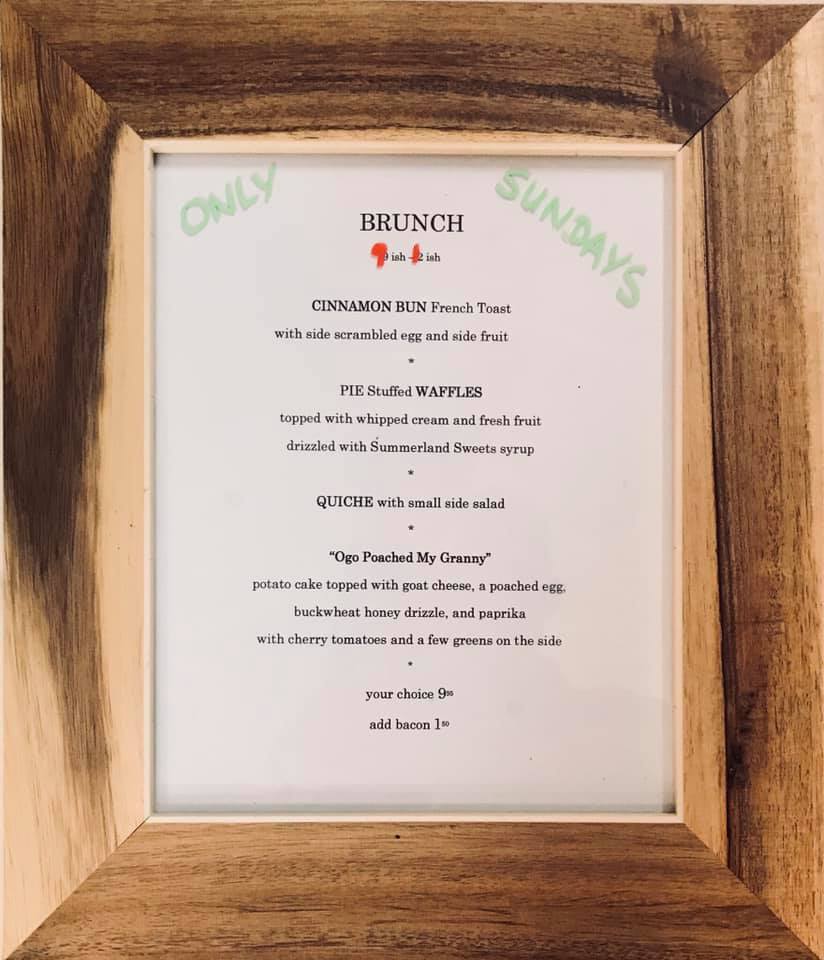 ONLY SUNDAYS
BRUNCH
9 ish - 12 ish
CINNAMON BUN French Toast
with side scrambled egg and side fruit
*
PIE Stuffed WAFFLES
topped with whipped cream and fresh fruit
drizzled with Summerland Sweets syrup
*
QUICHE with small side salad
*
“Ogo Poached My Granny”
potato cake topped with goat cheese, a poached egg,
buckwheat honey drizzle, and paprika
with cherry tomatoes and a few greens on the side
*
your choice 9⁹⁵
add bacon 1⁵⁰